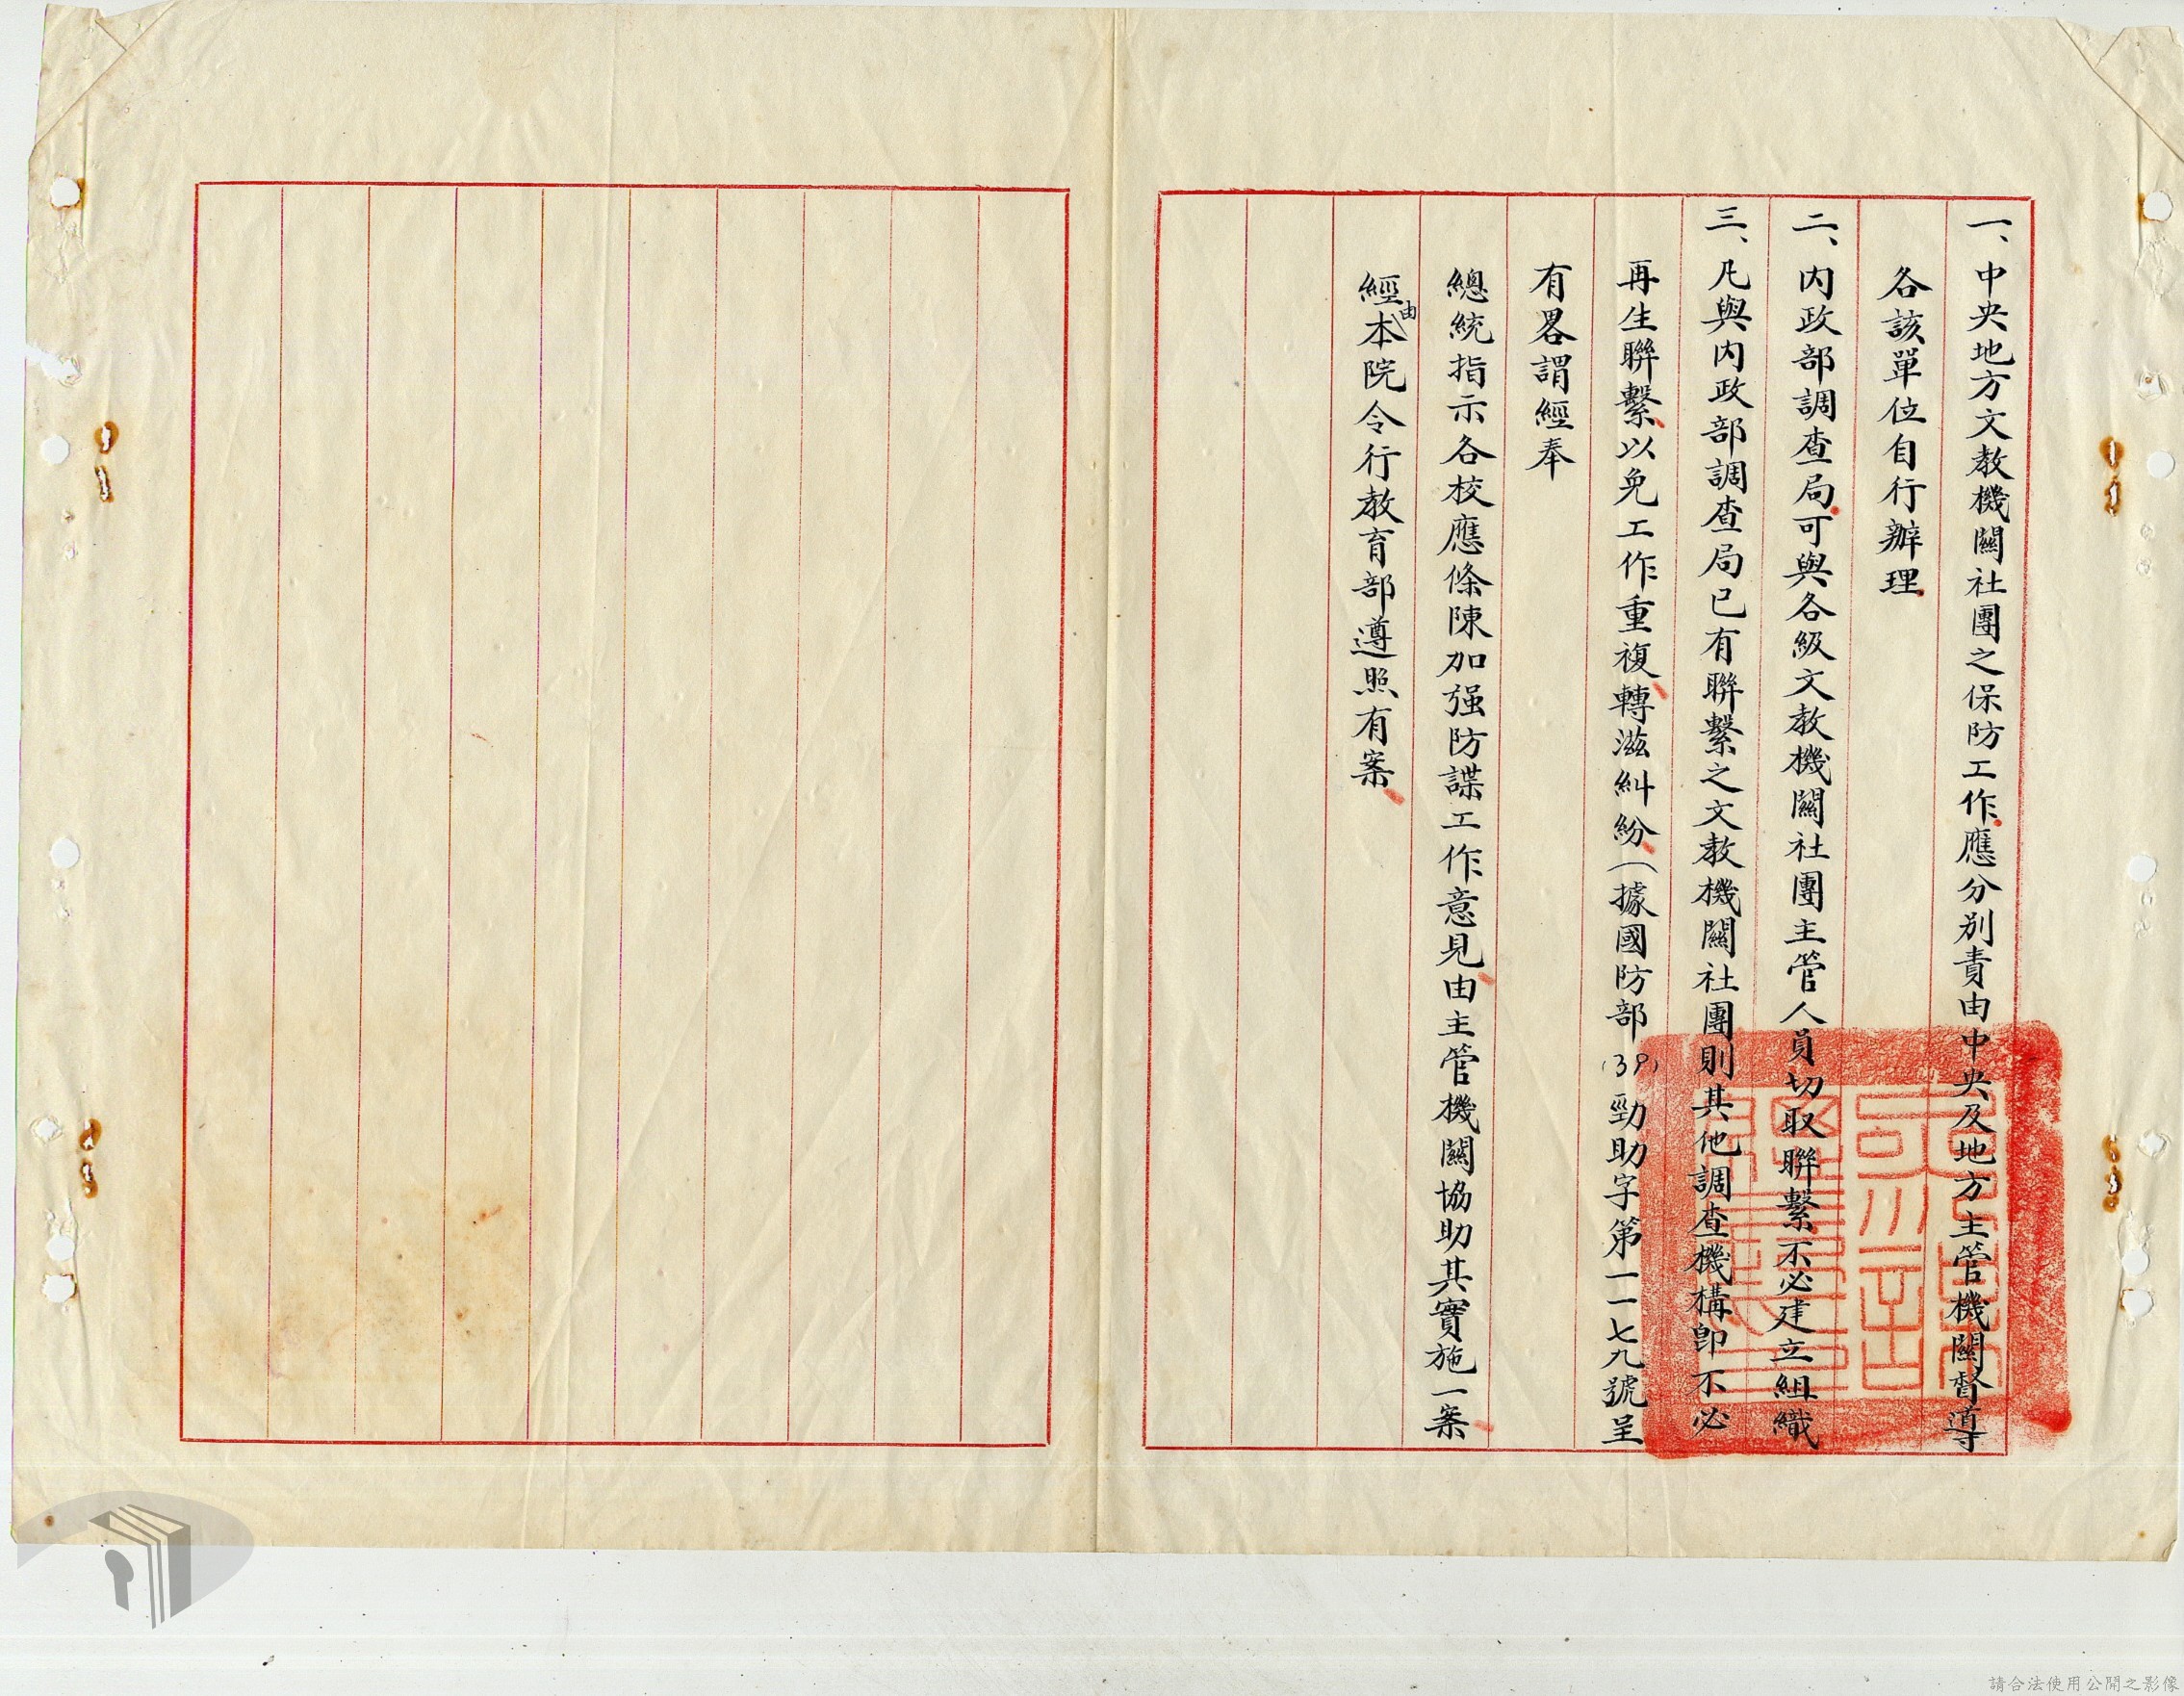 一、中央地方文教機關社團之保防工作應分別責由中央及地方主管機關督導
各該單位自行辦理
二、内政部調查局可與各級文教機關社團主管人員切取聯繫不必建立組織
三、凡與内政部調查局已有聯繫之文教機關社團則其他調查機構即不必
再生聯繫以免工作重複轉滋糾紛（據國防部(39)勁助字第一一七九號呈
有畧謂經奉
總統指示各校應條陳加强防諜工作意見由主管機關協助其實施一案
經由本院令行教育部遵照有案
請合法使用公開之影像